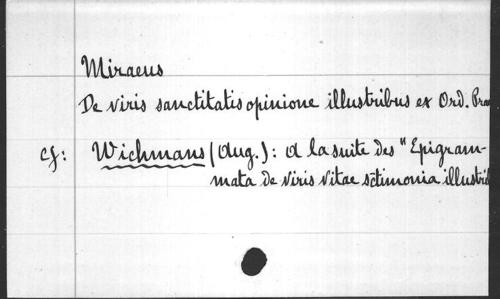 Miraeus
De viris sanctitatis opinione illustribus ex Ord. Prae
cf: Wichmans (Aug.): A la suite des "Epigram-
mata de viris vitae sctimonia illustrib